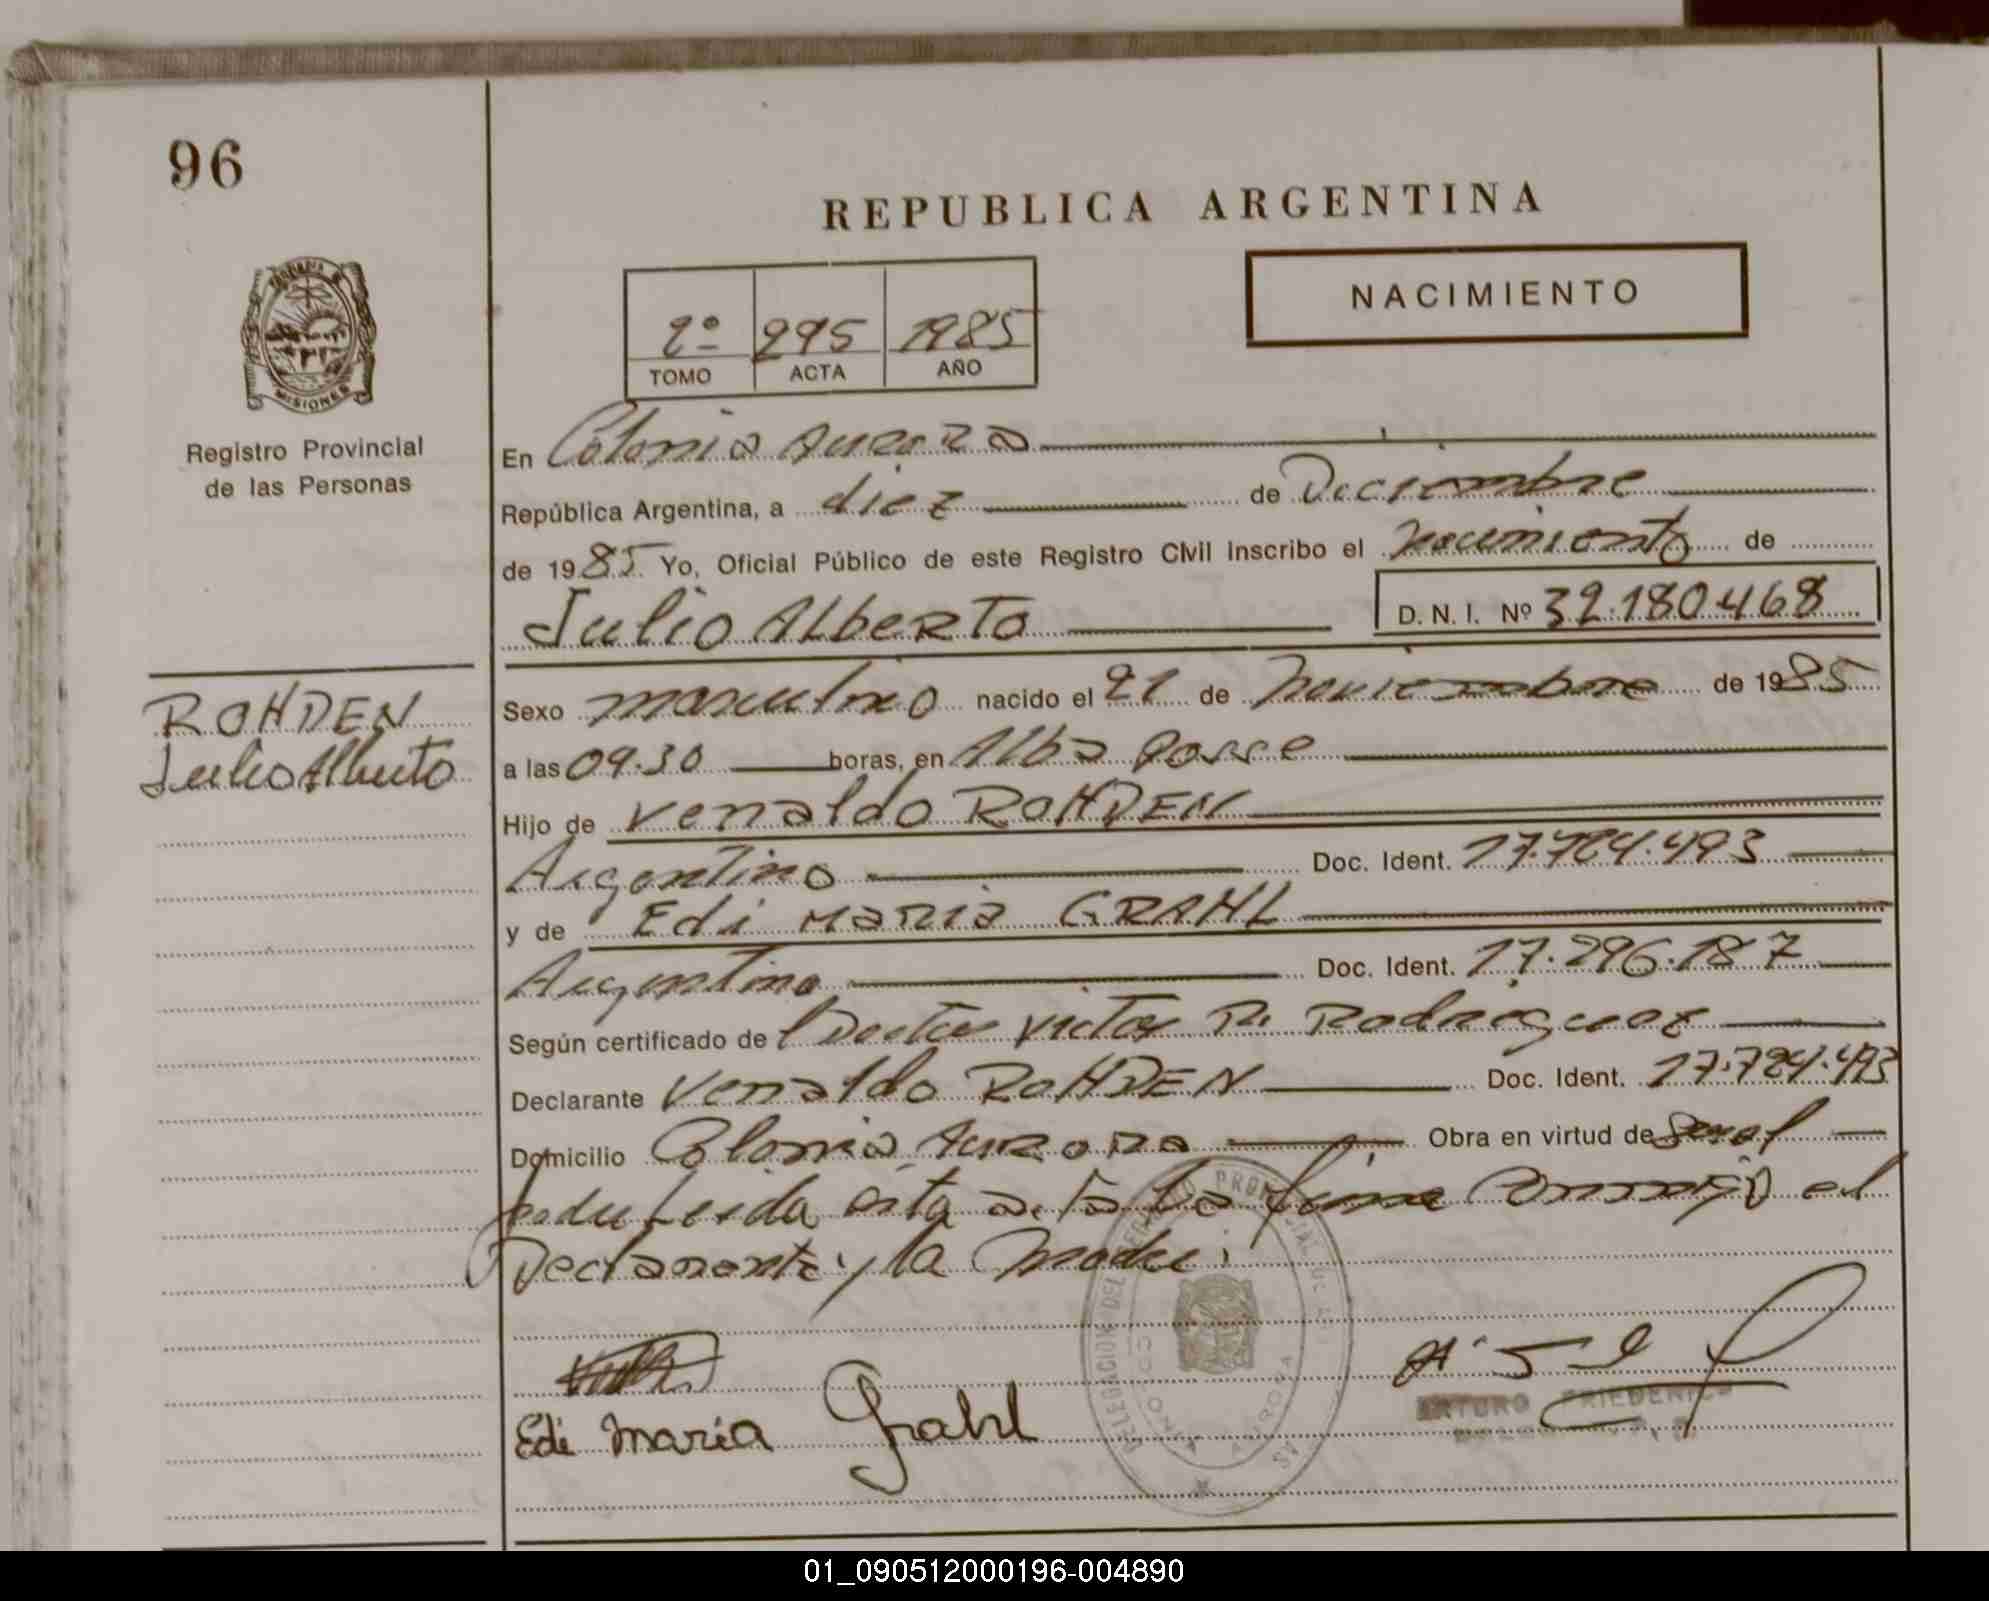 96
REPUBLICA ARGENTINA
NACIMIENTO
2º 295 1985
TOMO ACTA AÑO
MISIONES
Registro Provincial
de las Personas
En Colonia Aurora
República Argentina, a diez de Diciembre
de 1985 Yo, Oficial Público de este Registro Civil inscribo el nacimiento de
Julio Alberto D. N. I. Nº 32.180.468
ROHDEN
Julio Alberto
Sexo masculino nacido el 21 de noviembre de 1985
a las 09.30 horas, en Alba Posse
Hijo de Venaldo ROHDEN
Argentino Doc. Ident. 17.724.493
y de Edi Maria GRAHL
Argentina Doc. Ident. 17.296.187
Según certificado del Doctor Victor R. Rodriguez
Declarante Venaldo ROHDEN Doc. Ident. 17.724.493
Domicilio Colonia Aurora Obra en virtud de ser el
padre Leida esta acta la firma conmigo el
Declarante y la Madre.
DELEGACION DEL REGISTRO PROVINCIAL DE LAS
COLONIA AURORA
Edi Maria Grahl
ARTURO FRIEDERICH
01_090512000196-004890